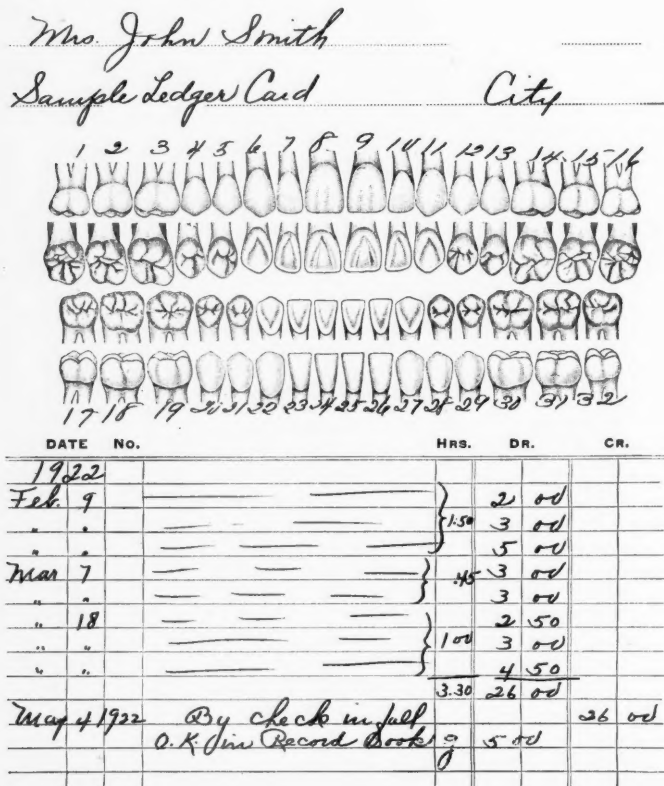 Mrs. John Smith
Sample Ledger Card City
1 2 3 4 5 6 7 8 9 10 11 12 13 14 15 16
17 18 19 20 21 22 23 24 25 26 27 28 29 30 31 32
DATE No. HRS. DR. CR.
1922
Feb. 9 2 00
" " 1.50 3 00
" " 5 00
Mar 7 .45 3 00
" " 3 00
" 18 2 50
" " 1 00 3 00
" " 4 50
3.30 26 00
May 4 1922 By check in full 26 00
O.K. in Record Book g 5 00